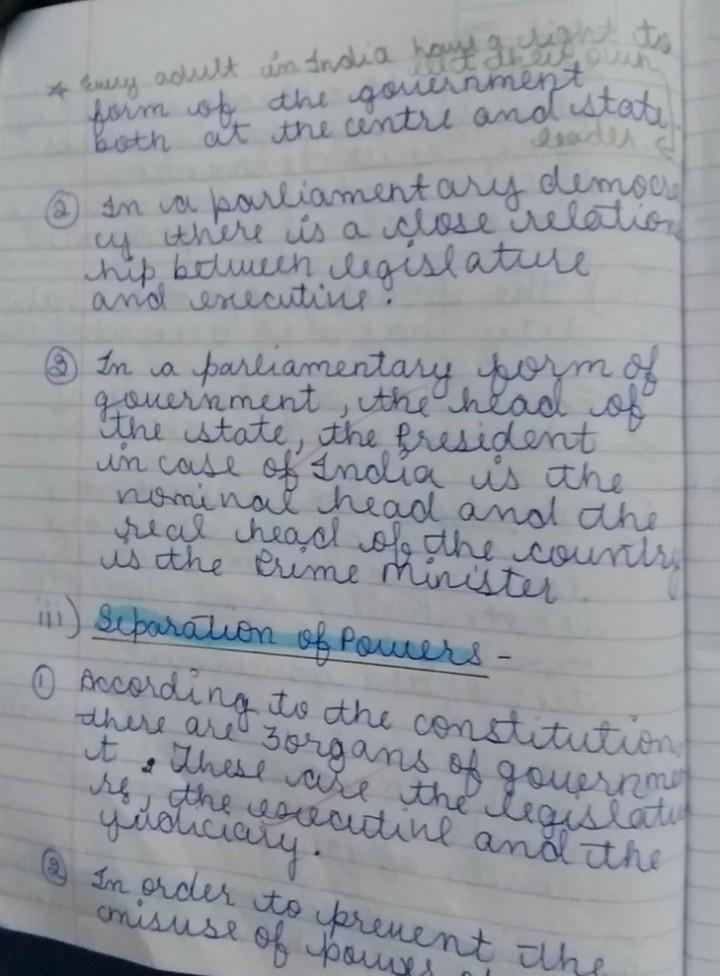 * Every adult in India have a right to
elect their own
form of the government
both at the centre and state
leader
② In a parliamentary democra
cy there is a close relation
hip between legislature
and executive.
③ In a parliamentary form of
government, the head of
the state, the President
in case of India is the
nominal head and the
real head of the country
is the Prime Minister
iii) Separation of Powers -
① According to the constitution
there are 3 organs of governme
t. These are the legislatu
re, the executive and the
judiciary.
② In order to prevent the
misuse of power